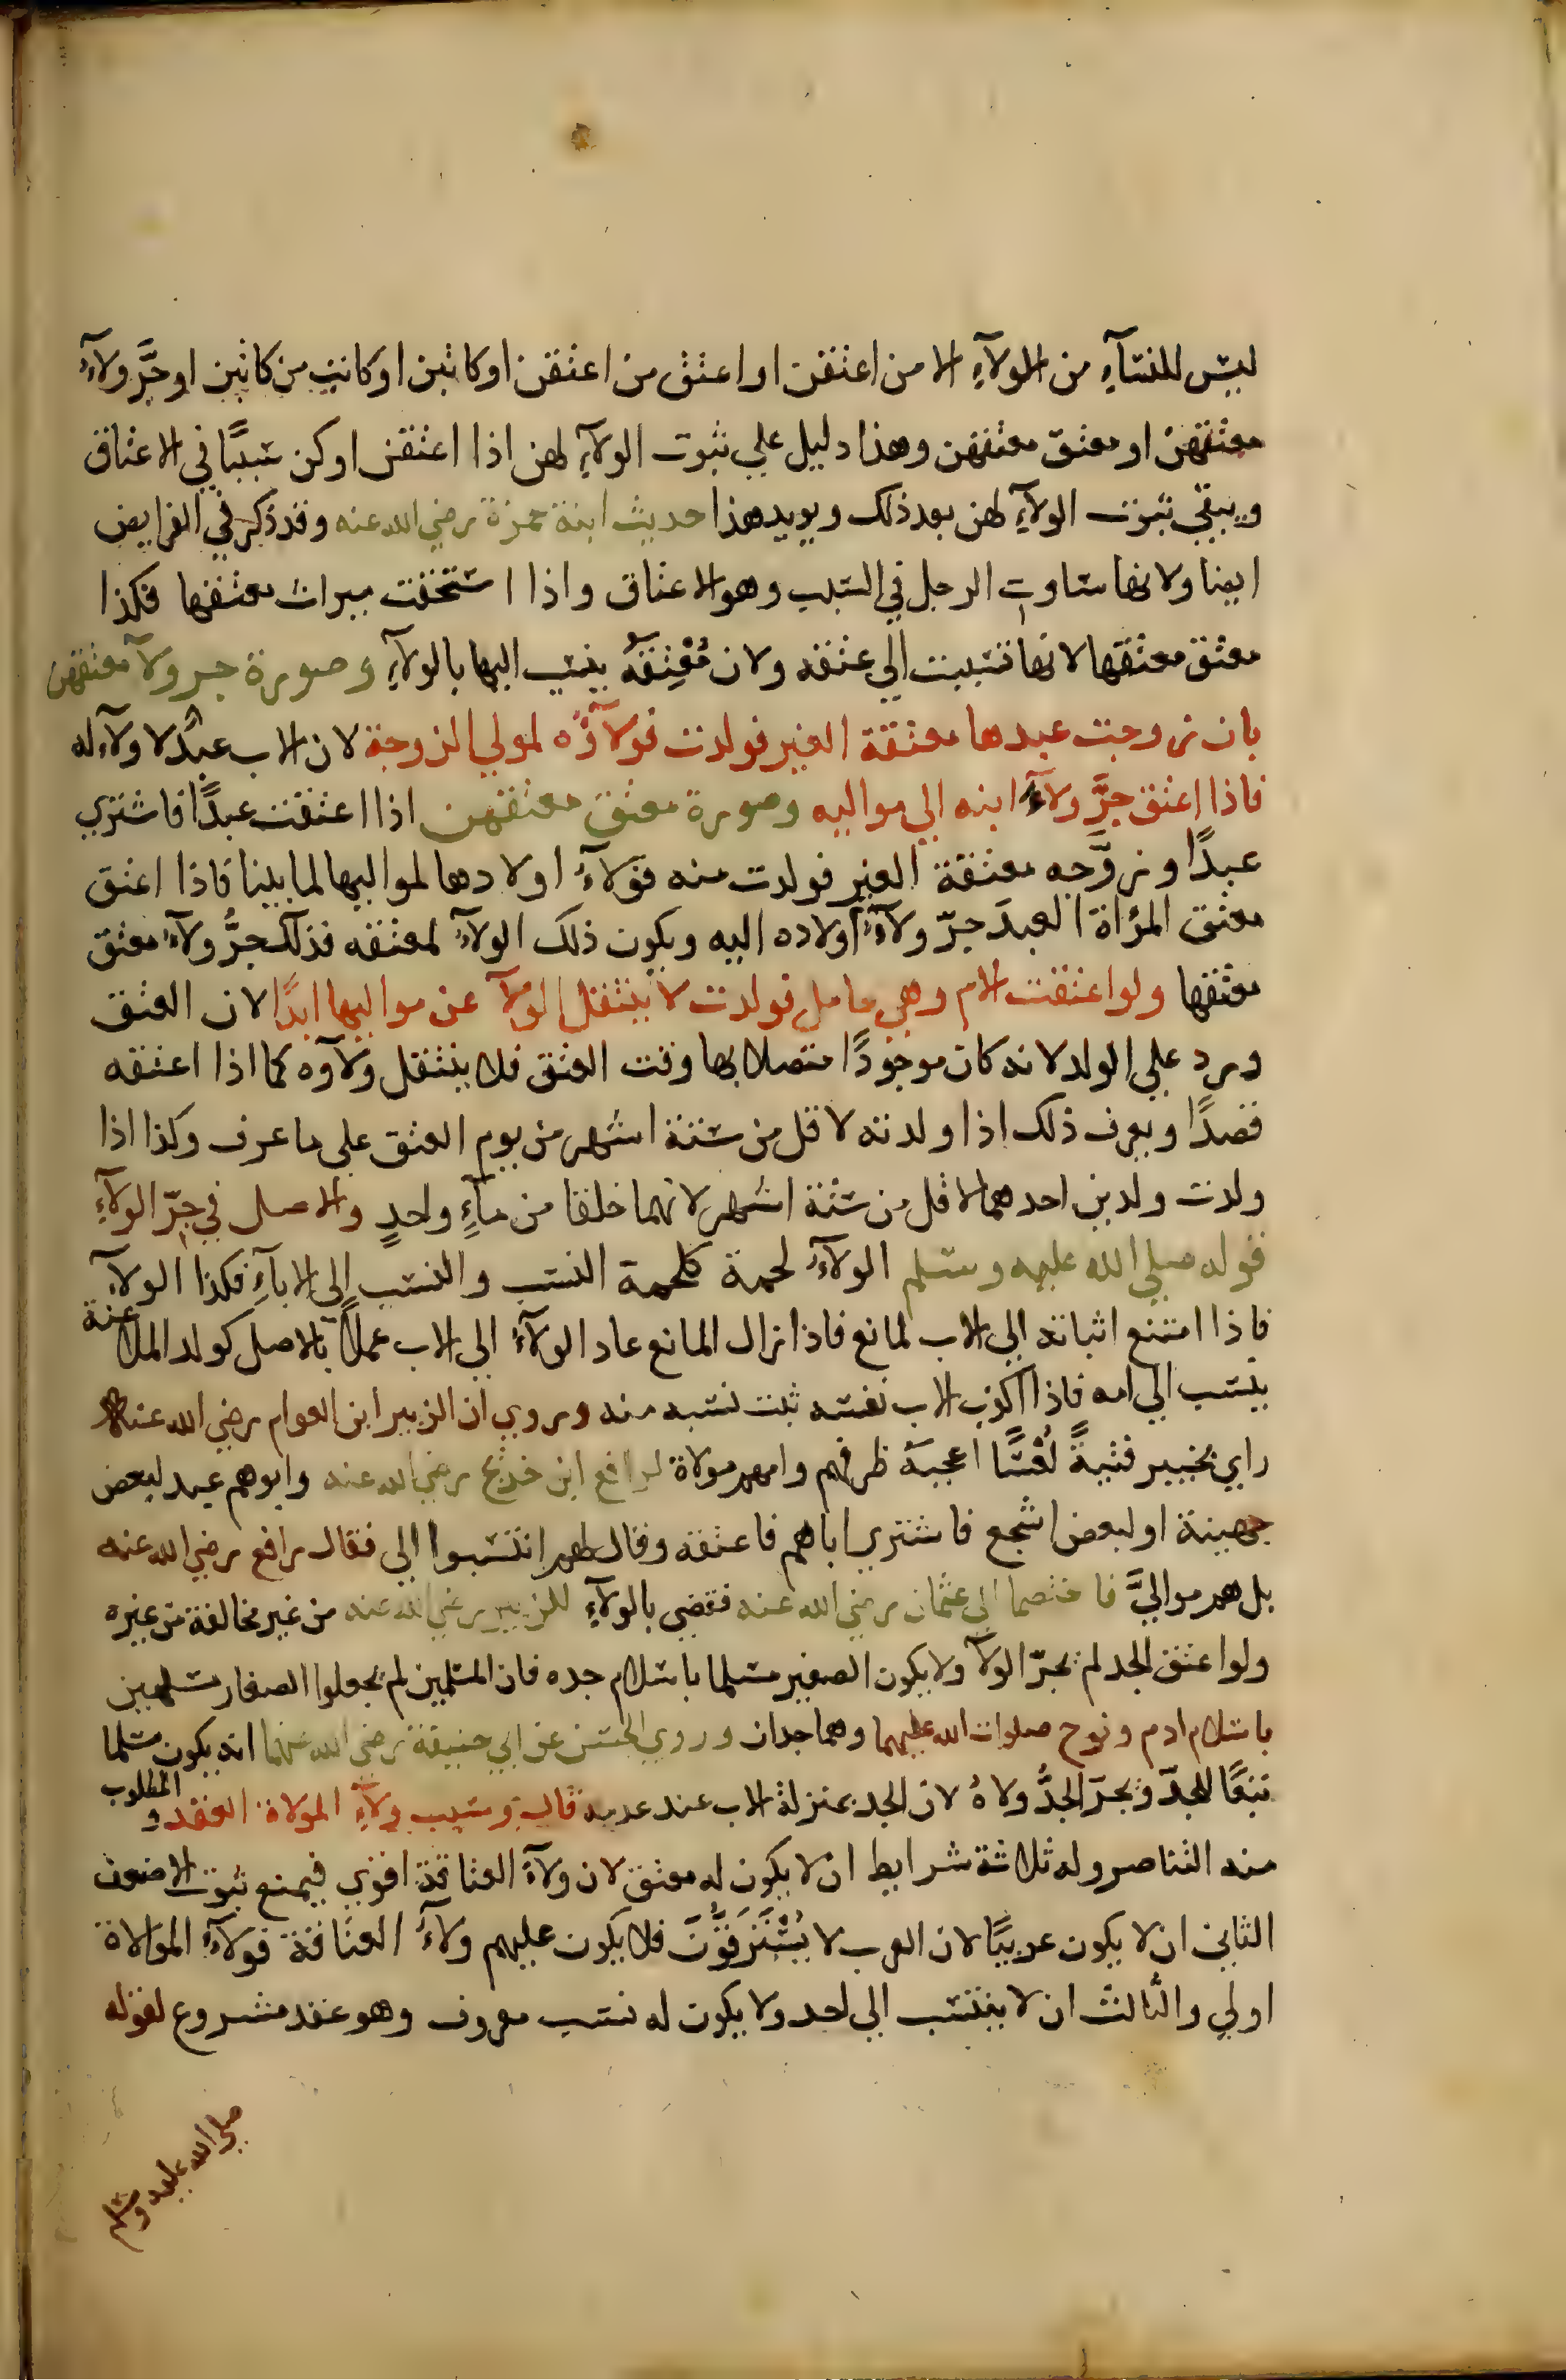 ليس للنسآءِ من الولآءِ الا من اعتقن او اعتق من اعتقن او كاتبن او كاتب من كاتبن او جرَّ ولآءُ
معتقهن او معتق معتقهن وهذا دليل علي ثبوت الولآءِ لهن اذا اعتقن او كن سببًا في الاعتاق
ويبقي ثبوت الولآءِ لهن بعد ذلك ويويد هذا حديث ابنة حمزة رضي الله عنه وقد ذكر في الفرايض
ايضا ولانها ساوت الرجل في السبب وهو الاعتاق واذا استحقت ميراث معتقها فكذا
معتق معتقها لانها تسببت الي عتقه ولان مُعْتِقَهُ ينسب اليها بالولآءِ وصورة جر ولآ معتقهن
بان زوجت عبدها معتقة الغير فولدت فولآؤُه لمولي الزوجة لان الاب عبدٌ لا ولآء له
فاذا اعتق جرَّ ولآءَ ابنه الي مواليه وصورة معتق معتقهن اذا اعتقت عبدًا فاشتري
عبدًا وزوَّجه معتقة الغير فولدت منه فولآءُ اولادها لمواليها لما بينا فاذا اعتق
معتق المرٔاة العبدَ جرّ ولآءَ اولاده اليه ويكون ذلك الولآءُ لمعتقه فذلك جرُّ ولآءِ معتق
معتقها ولو اعتقت الام وهي حامل فولدت لا ينتقل الولآ عن مواليها ابدًا لان العتق
ورد علي الولد لانه كان موجودًا متصلا بها وقت العتق فلا ينتقل ولآوه كما اذا اعتقه
قصدًا ويعرف ذلك اذا ولدته لاقل من ستة اشهر من يوم العتق علي ما عرف وكذا اذا
ولدت ولدين احدهما لاقل من ستة اشهر لانهما خلقا من مآءٍ واحدٍ والاصل في جرّ الولآءِ
قوله صلي الله عليه وسلم الولآءُ لحمة كلحمة النسب والنسب الي الابآءِ فكذا الولآء
فاذا امتنع اثباته الي الاب لمانع فاذا زال المانع عاد الولآءُ الي الاب عملًا بالاصل كولد الملاعنة
ينسب الي امه فاذا اكذب الاب نفسه ثبت نسبه منه وروي ان الزبير ابن العوام رضي الله عنه
راي بخيبر فتيةً لُعْسًا اعجبه ظرفهم وامهم مولاة لرافع ابن خديج رضي الله عنه وابوهم عبد لبعض
جهينة او لبعض اشجع فاشتري اباهم فاعتقه وقال لهم انتسبوا الي فقال رافع رضي الله عنه
بل هم مواليَّ فاختصما الي عثمان رضي الله عنه فقضي بالولآءِ للزبير رضي الله عنه من غير مخالفة من غيره
ولو اعتق الجد لم يجرّ الولآ ولا يكون الصغير مسلما باسلام جده فان المسلمين لم يجعلوا الصغار مسلمين
باسلام ادم ونوح صلوات الله عليهما وهما جدان وروي الحسن عن ابي حنيفة رضي الله عنهما انه يكون مسلما
تبعًا للجدّ ويجرّ الجدُّ ولاهُ لان الجد بمنزلة الاب عند عدمه قال وسبب ولآءِ المولاة العقد والمطلوب
منه التناصر وله ثلاثة شرايط ان لا يكون له معتق لان ولآءَ العتاقة اقوي فيمنع ثبوت الاضعف
الثاني ان لا يكون عربيًا لان العرب لا يُسْتَرَقُّونَ فلا يكون عليهم ولآءُ العتاقة فولآءُ الموالاة
اولي والثالث ان لا ينتسب الي احد ولا يكون له نسب معروف وهو عقد مشروع لقوله
صلي الله عليه وسلم